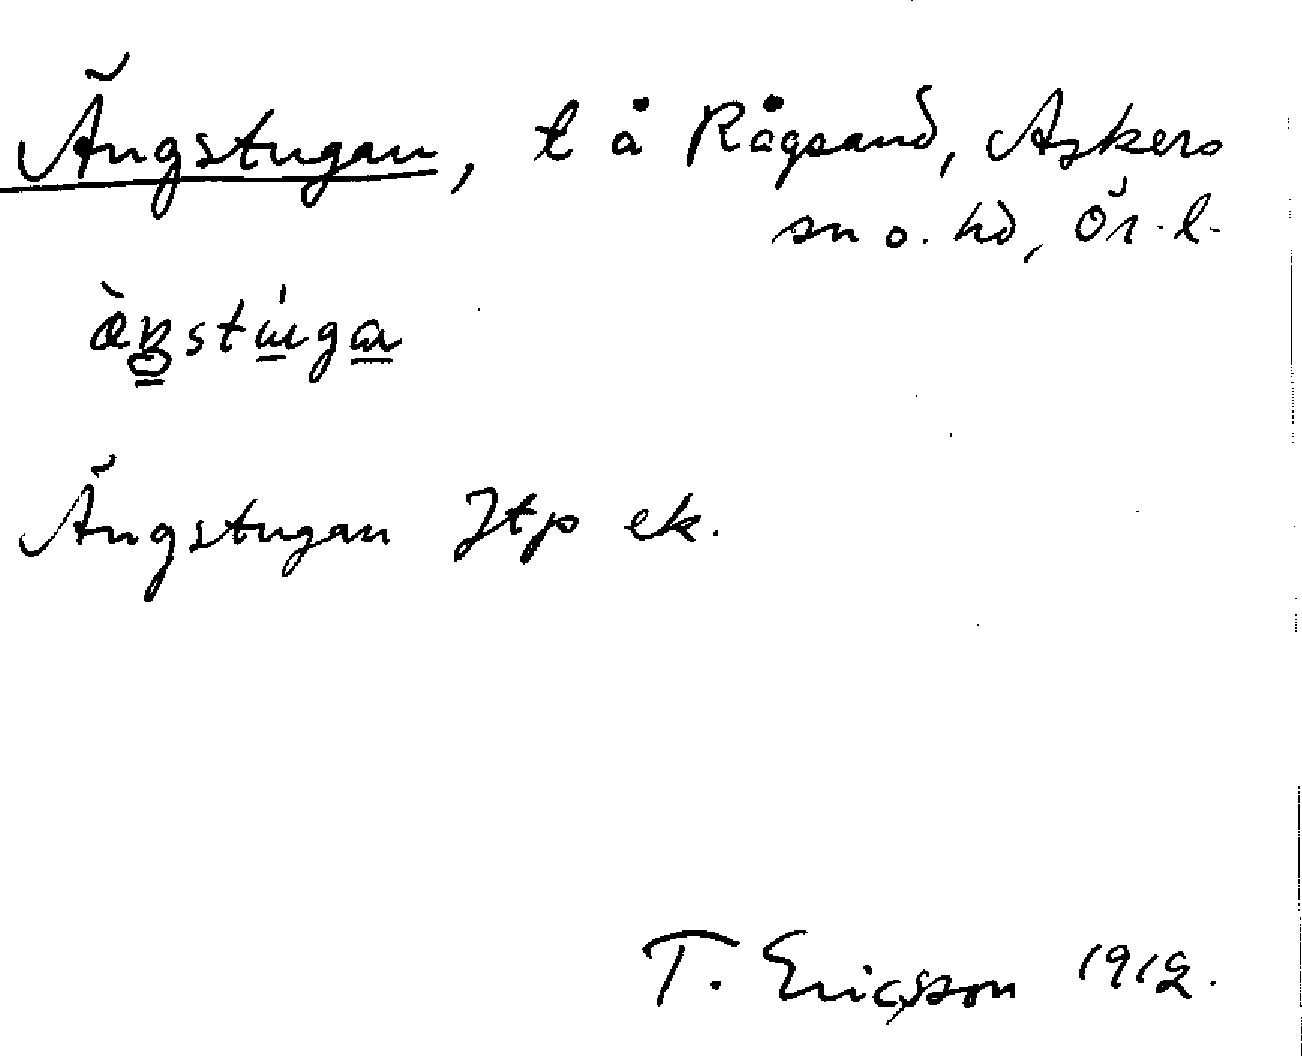 Ängstugan, t å Rågsand, Askers
sn o. hd, Ör. l.
Ängstugan Jtp ek.
T. Ericsson 1912.